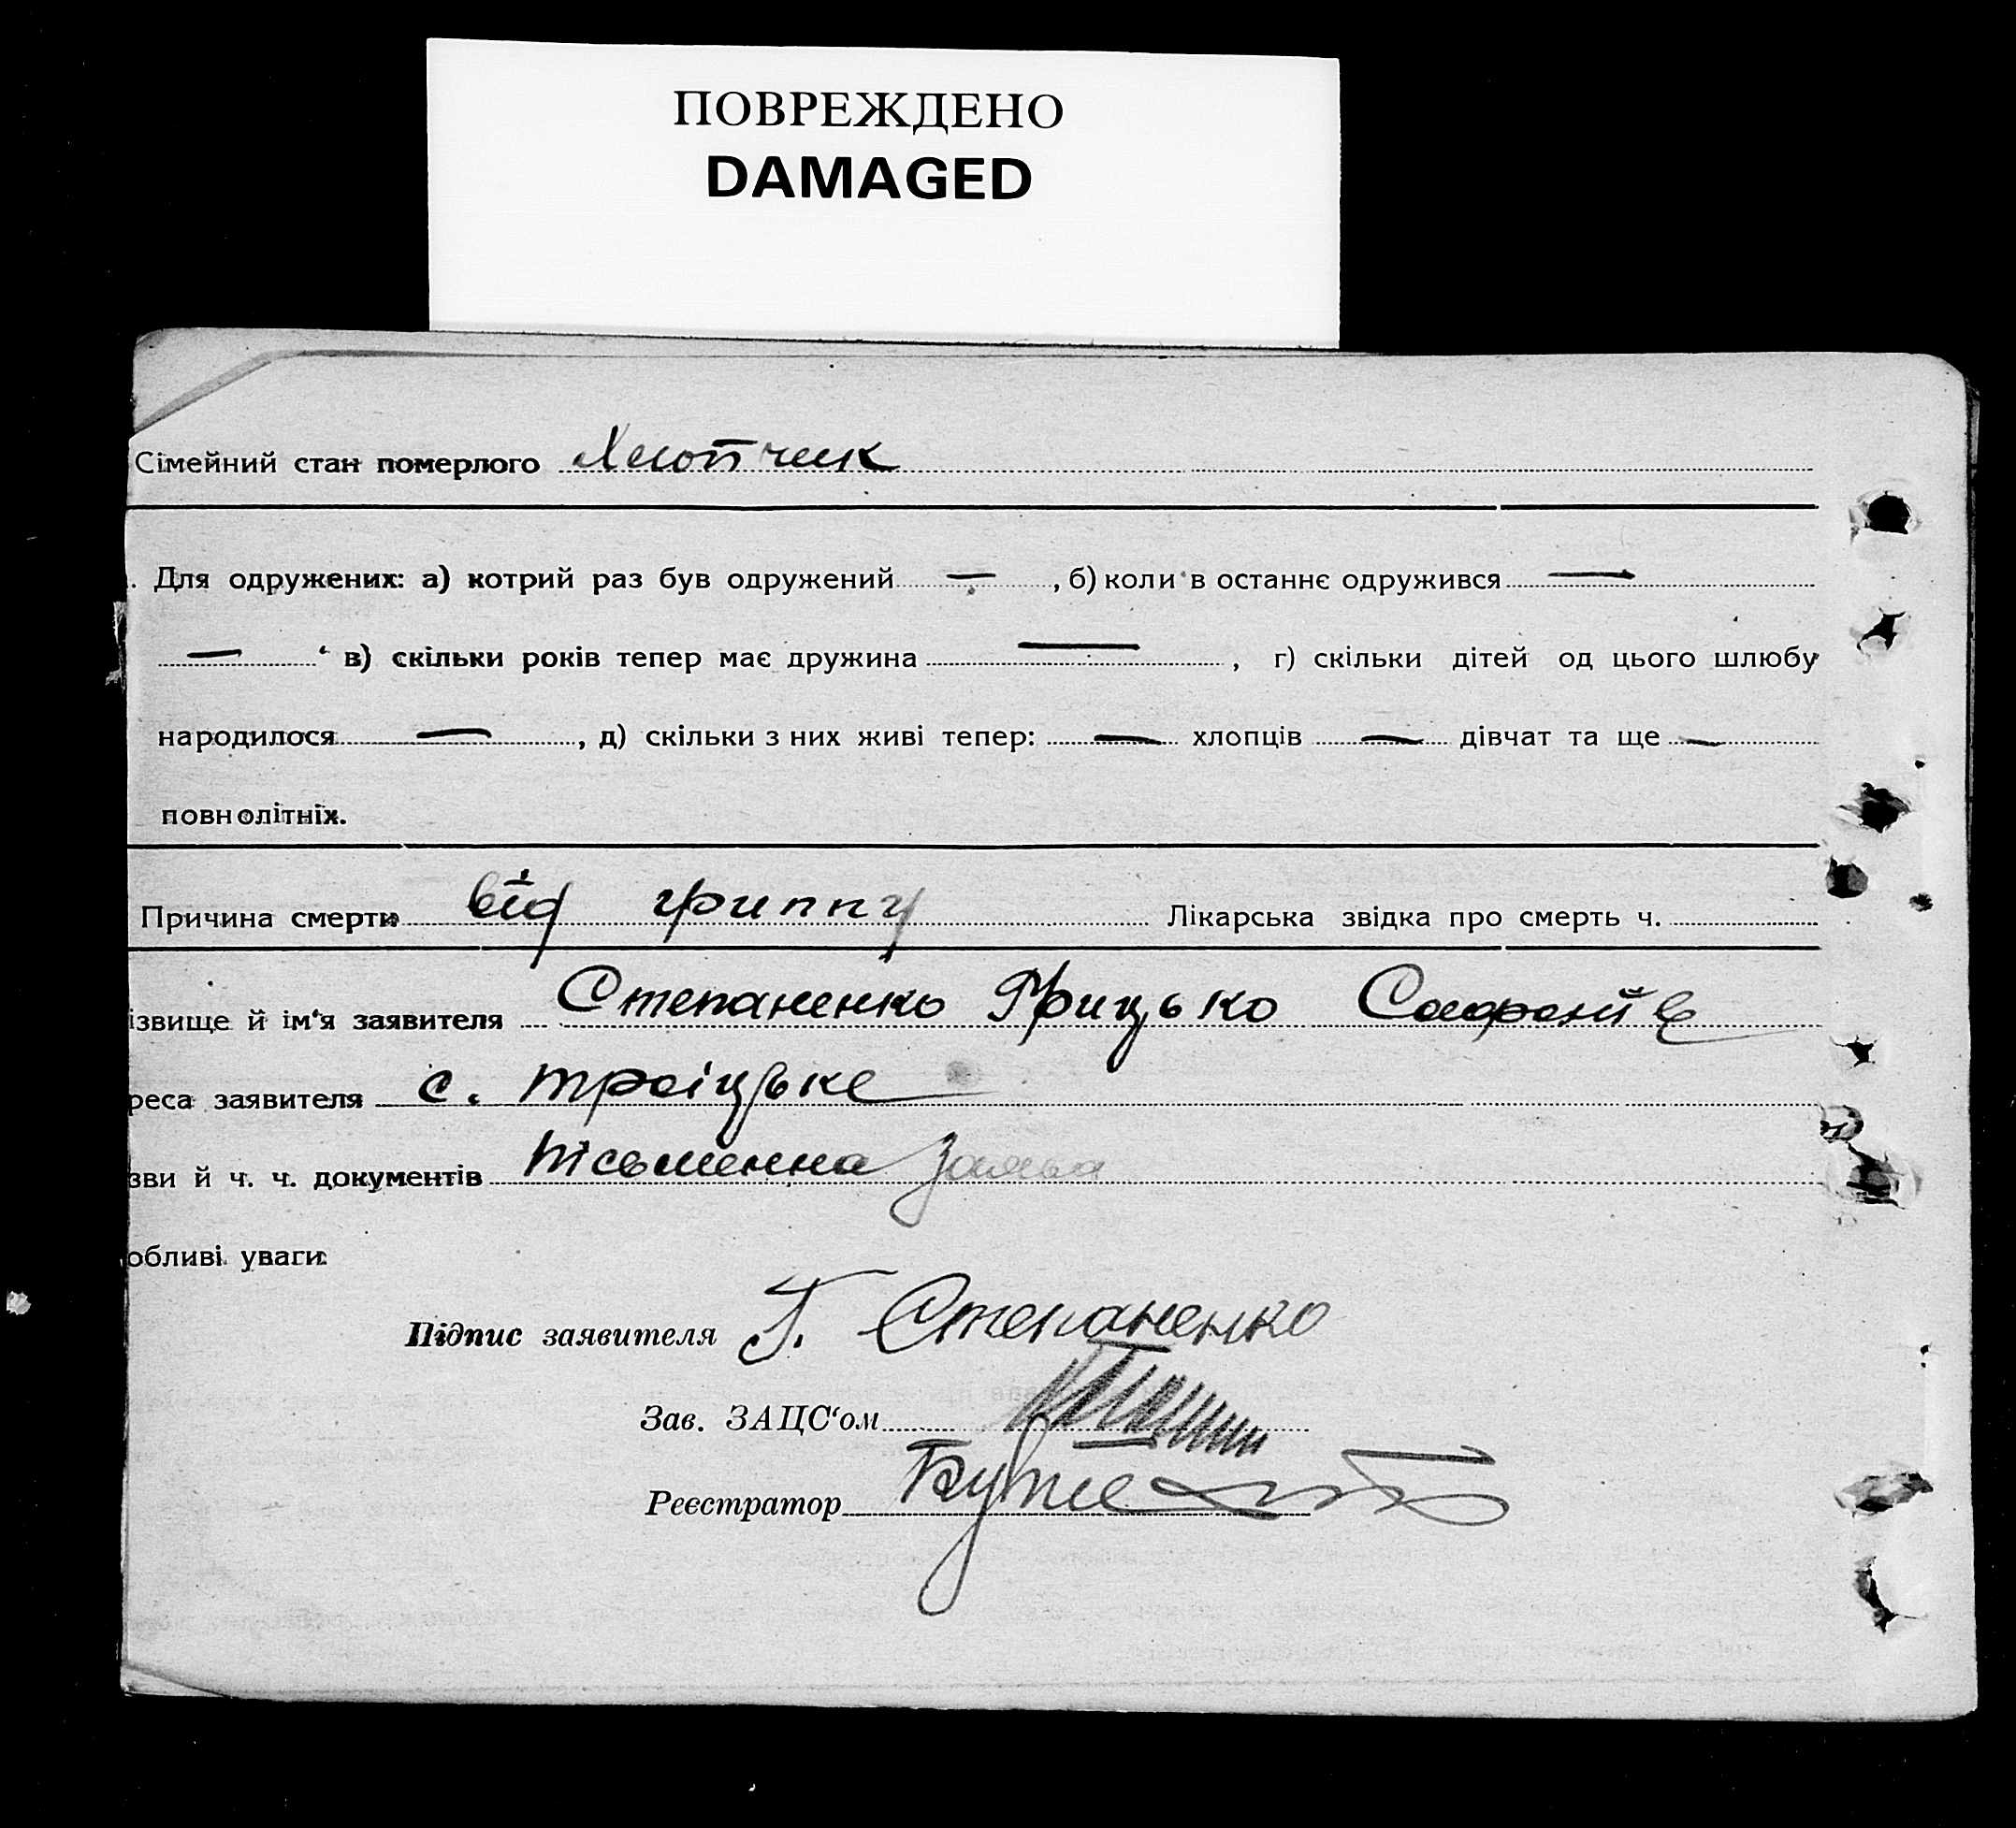 ПОВРЕЖДЕНО
DAMAGED
Сімейний стан померлого Хлопчик
. Для одружених: а) котрий раз був одружений — , б) коли в останнє одружився —
— ‘ в) скільки років тепер має дружина — , г) скільки дітей од цього шлюбу
народилося — , д) скільки з них живі тепер: — хлопців — дівчат та ще —
повнолітніх.
Причина смерти від гриппу Лікарська звідка про смерть ч.
ізвище й ім‘я заявителя Степаненко Грицько
реса заявителя с. троіцьке
зви й ч. ч. документів пісьменна заява
обливі уваги:
Підпис заявителя Г. Степаненко
Зав. ЗАЦС‘ом
Реєстратор